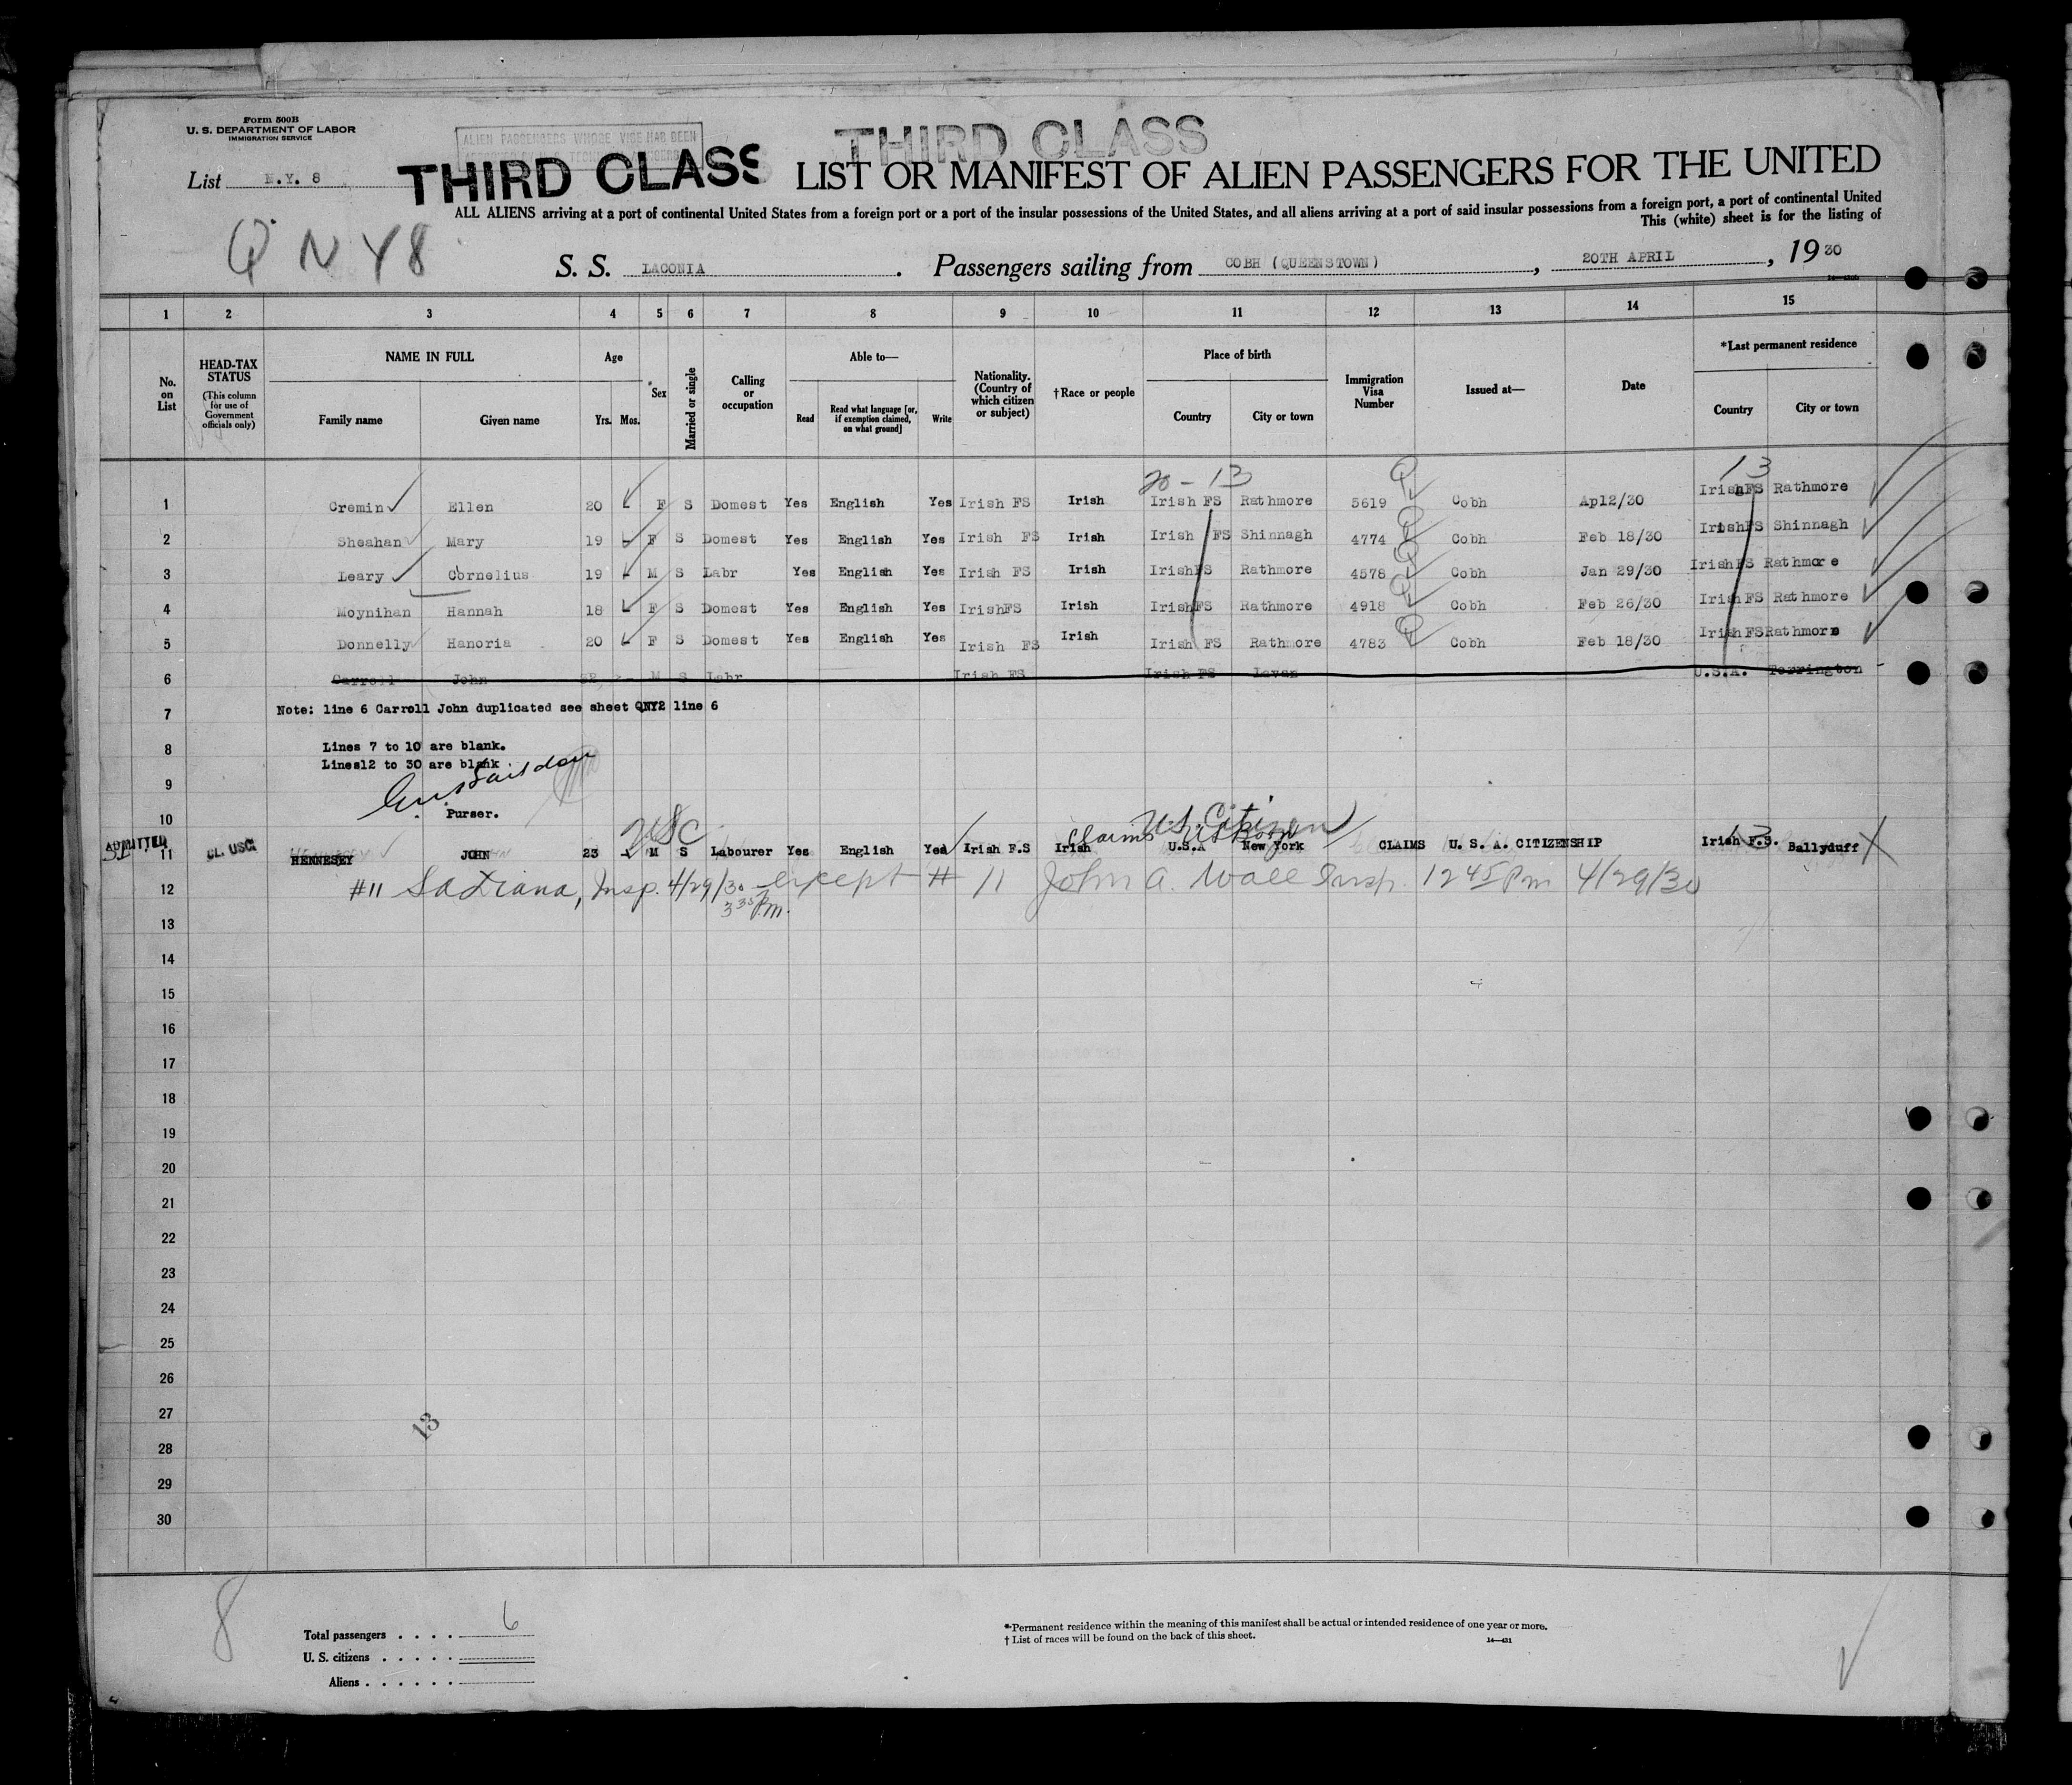 Form 500B
U. S. DEPARTMENT OF LABOR
IMMIGRATION SERVICE
ALIEN PASSENGERS WHOSE VISE HAS BEEN
THIRD CLASS
List N.Y. 8
THIRD CLASS LIST OR MANIFEST OF ALIEN PASSENGERS FOR THE UNITED
ALL ALIENS arriving at a port of continental United States from a foreign port or a port of the insular possessions of the United States, and all aliens arriving at a port of said insular possessions from a foreign port, a port of continental United
This (white) sheet is for the listing of
Q NY8
S. S. LACONIA . Passengers sailing from COBH (QUEENSTOWN) , 20TH APRIL , 19 30
1 2 3 4 5 6 7 8 9 10 11 12 13 14 15
No. on List
HEAD-TAX STATUS
(This column for use of Government officials only)
NAME IN FULL
Family name Given name
Age
Yrs. Mos.
Sex
Married or single
Calling or occupation
Able to—
Read
Read what language [or, if exemption claimed, on what ground]
Write
Nationality. (Country of which citizen or subject)
†Race or people
Place of birth
Country City or town
Immigration Visa Number
Issued at—
Date
*Last permanent residence
Country City or town
20-13 13
1 Cremin Ellen 20 - F S Domest Yes English Yes Irish FS Irish Irish FS Rathmore 5619 Q Cobh Ap12/30 Irish FS Rathmore
2 Sheahan Mary 19 - F S Domest Yes English Yes Irish FS Irish Irish FS Shinnagh 4774 Q Cobh Feb 18/30 Irish FS Shinnagh
3 Leary Cornelius 19 - M S Labr Yes English Yes Irish FS Irish IrishFS Rathmore 4578 Q Cobh Jan 29/30 Irish FS Rathmore
4 Moynihan Hannah 18 - F S Domest Yes English Yes IrishFS Irish IrishFS Rathmore 4918 Q Cobh Feb 26/30 Irish FS Rathmore
5 Donnelly Hanoria 20 - F S Domest Yes English Yes Irish FS Irish Irish FS Rathmore 4783 Q Cobh Feb 18/30 Irish FS Rathmore
6 Carroll John M S Labr Irish FS Irish FS U.S.A. Torrington
7 Note: line 6 Carroll John duplicated see sheet QNY2 line 6
8 Lines 7 to 10 are blank.
Lines12 to 30 are blank
9
Purser.
10
USC U.S. Citizen
Claims US Born
ADMITTED 11 CL. USC. HENNESEY JOHN 23 - M S Labourer Yes English Yes Irish F.S Irish U.S.A New York CLAIMS U. S. A. CITIZENSHIP Irish F.S. Ballyduff
12 #11 Insp. 4/29/30 except # 11 John A. Wall Insp. 12 45 Pm 4/29/30
3 35 P.m.
13
14
15
16
17
18
19
20
21
22
23
24
25
26
27
13
28
29
30
8
Total passengers . . . . 6
U. S. citizens . . . . .
Aliens . . . . . .
*Permanent residence within the meaning of this manifest shall be actual or intended residence of one year or more.
† List of races will be found on the back of this sheet.
14—431